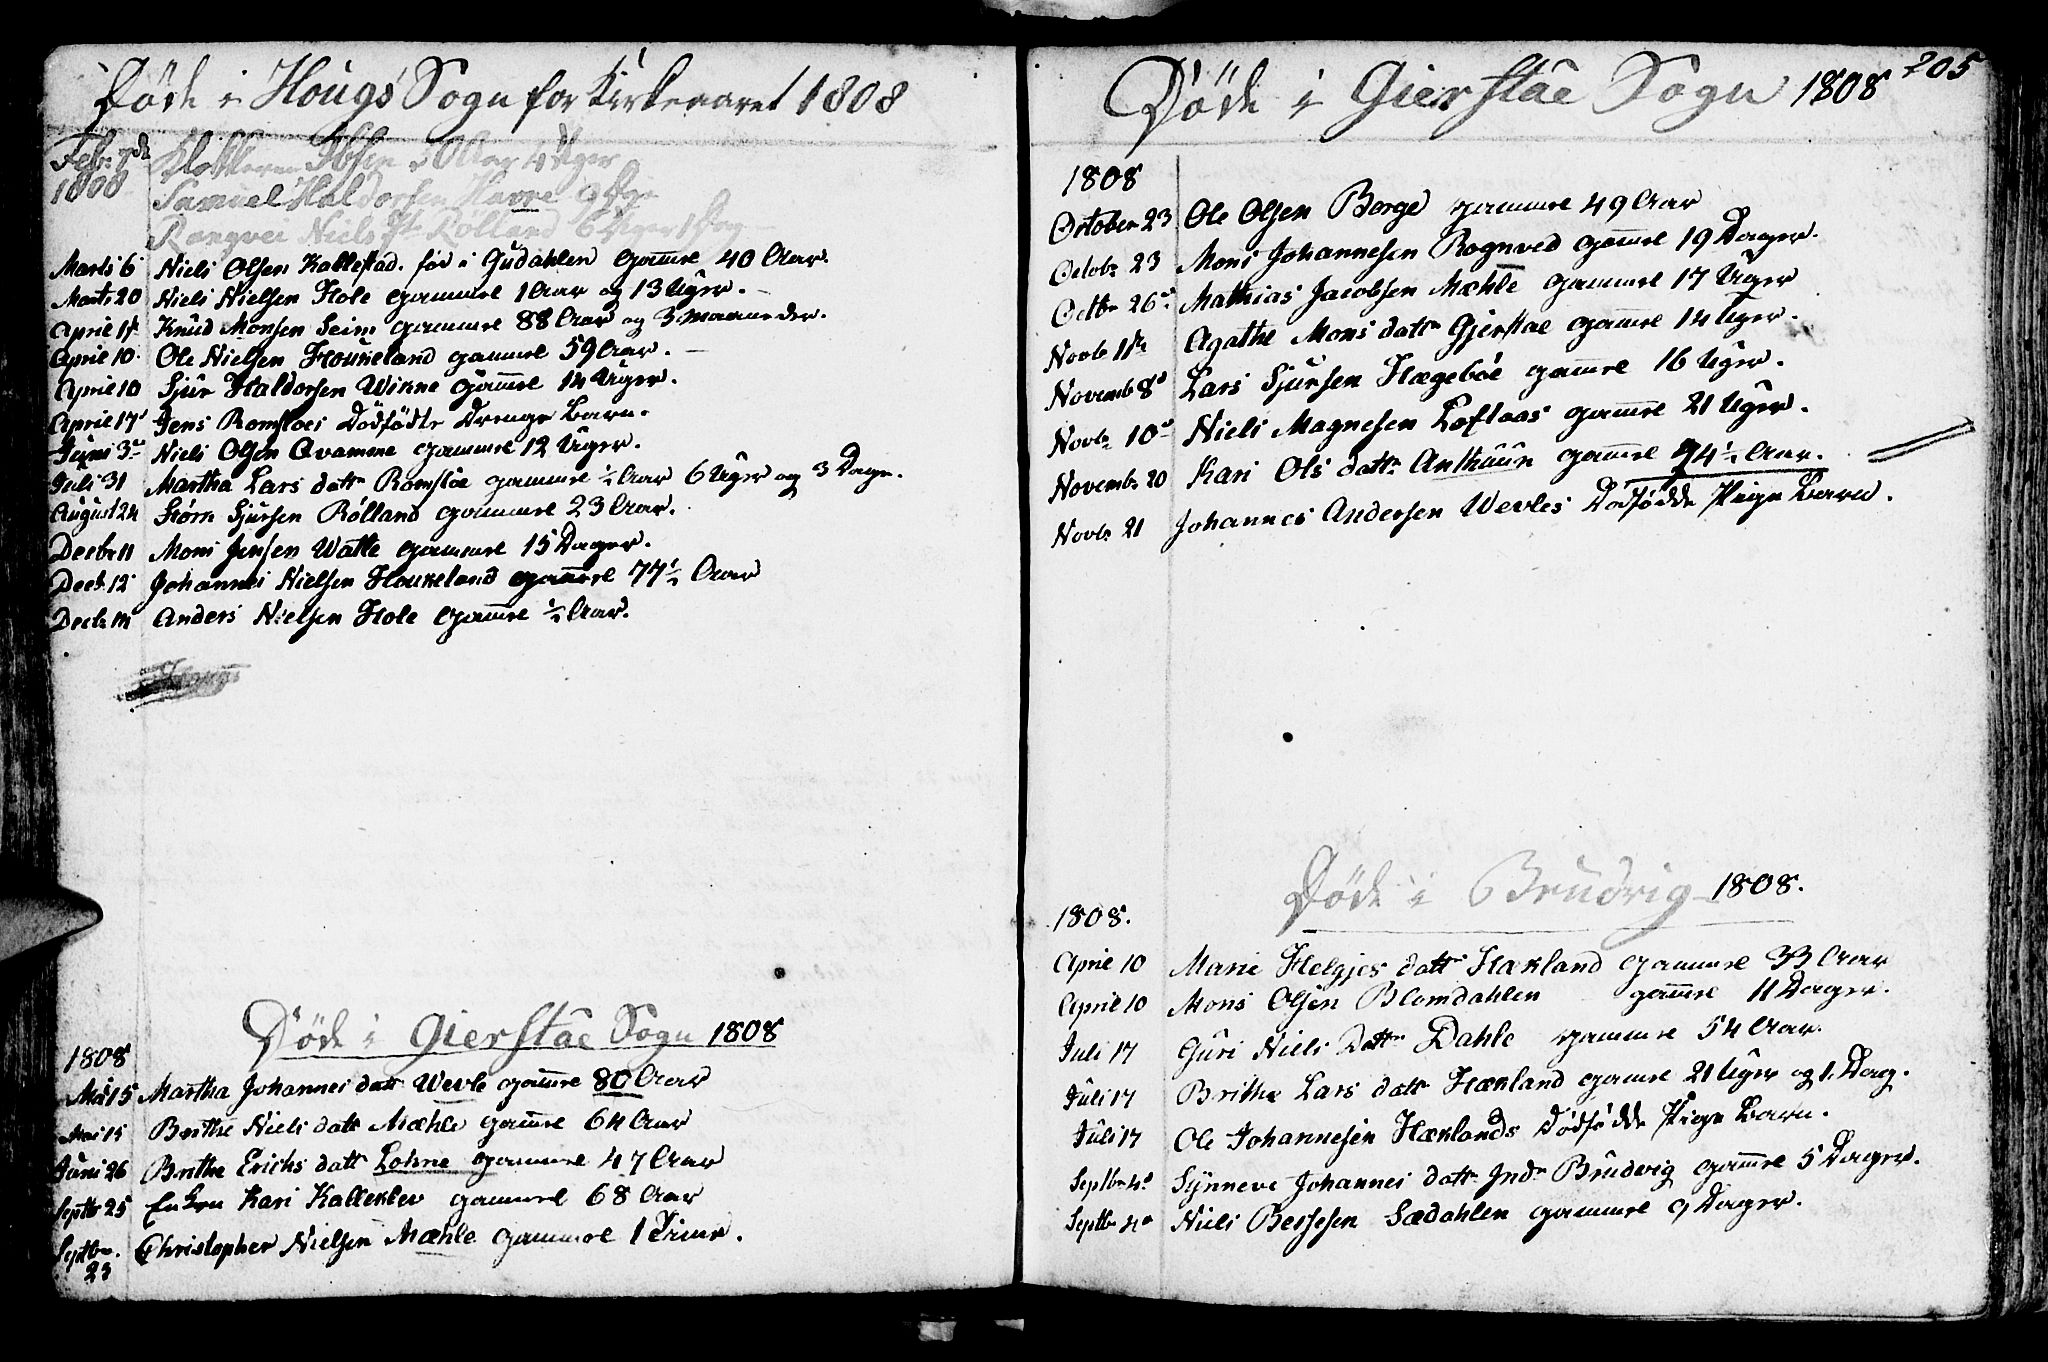 Døde i Hougs Sogn for Kirkeaaret 1808
Febr. 7de Klokkeren Ibsen 4 Uger
1808 Samuel Haldorsen Havre 9 Dge
Rangvei Niels dt Rølland 6 Uger 1 Dag
Marts 6 Niels Olsen Kallestad. før i Gudahlen gamel 40 Aar.
Marts 20 Niels Nielsen Hole gammel 1 Aar og 13 Uger.
April 1ste Knud Monsen Seim gammel 88 Aar og 3 maaneder.
April 10. Ole Nielsen Houkeland gammel 59 Aar.
April 10 Sjur Haldorsen Wikne gamel 14 Uger.
April 17 Jens Romsloes Dödfödte Drenge Barn.
Juni 3die Niels Olsen Qvamme gammel 12 Uger.
Juli 31 Martha Lars datr Romsloe gammel ½ Aar 6 Uger og 3 Dage.
August 24 Størk Sjursen Rölland gammel 23 Aar.
Decbr 11 Mons Jensen Watle gammel 15 Dager.
Decb. 12 Johannes Nielsen Houkeland gammel 77½ Aar
Decbr Anders Nielsen Hole gamel ½ Aar.
Döde i Gierstae Sogn 1808
1808
Mai 15 Martha Johannes datt Wevle gamel 80 Aar
Mai 15 Brithe Niels datt Mæhle gamel 64 Aar
Juni 26 Brithe Erichs datt Lohne gammel 47 Aar
Septbr 25 Enken Kari Kalleklev gammel 68 Aar
Septbr. Christopher Nielsen Mæhle gammel 1 Time.
25
205
Döde i Gierstae Sogn 1808
1808
October 23 Ole Olsen Borge gammel 49 Aar
Octobr 23 Mons Johannesen Rognved gamel 19 Dager.
Octbr 26de Mathias Jacobsen Mæhle gammel 17 Uger
Novbr 1ste Agathe Mons datter Gjerstae gamel 14 Uger.
Novemb 8de Lars Sjursen Hægeböe gamel 16 Uger.
Novbr 10de Niels Magnesen Loftaas gamel 21 Uger.
Novembr 20 Kari Ols datter Anthuun gamel 94½ Aar.
Novbr 21 Johannes Andersen Wevles Dødfødde Pige Barn.
Døde i Brudvig 1808.
1808.
April 10 Marie Helgjes datt Hækland gammel 33 Aar
April 10 Mons Olsen Blomdahlen gamel 11 Dager.
Juli 17 Guri Niels Dattr Dahle gammel 54 Aar.
Juli 17 Brithe Lars datt Hækland gamel 21 Uger og 1. Dag.
Juli 17 Ole Johannesen Hæklands Dødfødde Pige Barn.
Septbr 4de Synneve Johannes datt Indr Brudvig gamel 5 Dager.
Septbr 4de Niels Bersesen Sædahlen gammel 9 Dager.